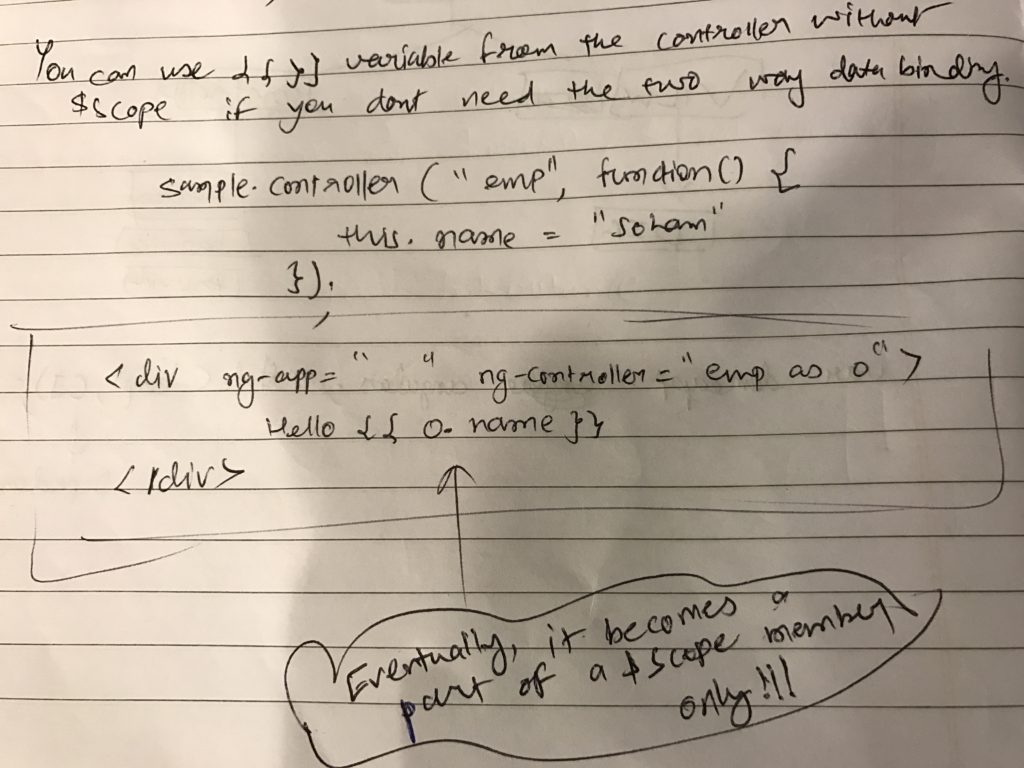 You can use {{ }} variable from the controller without
$scope if you dont need the two way data binding.
sample.controller ("emp", function() {
this.name = "Soham"
});
<div ng-app=" " ng-controller = "emp as o">
Hello {{ o.name }}
</div>
Eventually, it becomes a
part of a $scope member
only!!!